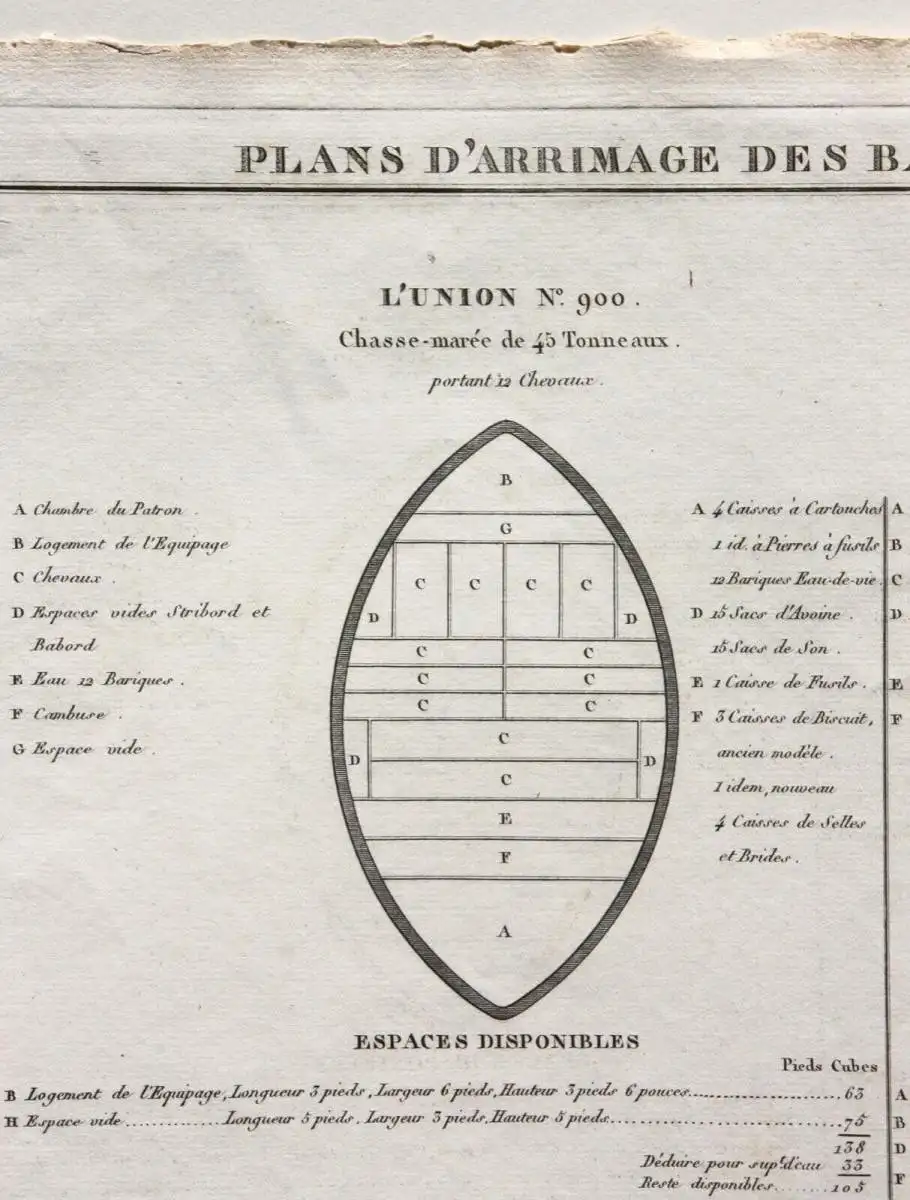 PLANS D'ARRIMAGE DES
L'UNION N.º 900.
Chasse-marée de 45 Tonneaux.
portant 12 Chevaux.
A Chambre du Patron.
B Logement de l'Equipage
C Chevaux.
D Espaces vides Stribord et
Babord
E Eau 12 Bariques.
F Cambuse.
G Espace vide.
B
G
C C C C
D D
C C
C C
C C
C
D D
C
E
F
A
A 4 Caisses à Cartouches
1 id. à Pierres à fusils
12 Bariques Eau-de-vie.
D 15 Sacs d'Avoine.
15 Sacs de Son.
E 1 Caisse de Fusils.
F 3 Caisses de Biscuit,
ancien modèle.
1 idem, nouveau
4 Caisses de Selles
et Brides.
A
B
C
D
E
F
ESPACES DISPONIBLES
Pieds Cubes
B Logement de l'Equipage, Longueur 3 pieds, Largeur 6 pieds, Hauteur 3 pieds 6 pouces....................63
H Espace vide.............Longueur 5 pieds. Largeur 3 pieds, Hauteur 5 pieds..............................75
138
Déduire pour sup.t d'eau 33
Reste disponibles........105
A
B
D
F